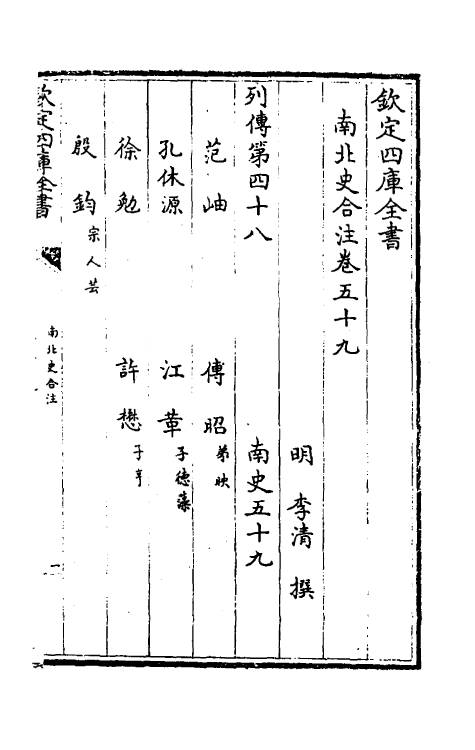 欽定四庫全書
南北史合注卷五十九
明 李清 撰
列傳第四十八 南史五十九
范岫 傅昭弟映
孔休源 江革子德藻
徐勉 許懋子亨
殷鈞宗人芸
欽定四庫全書 南北史合注 一